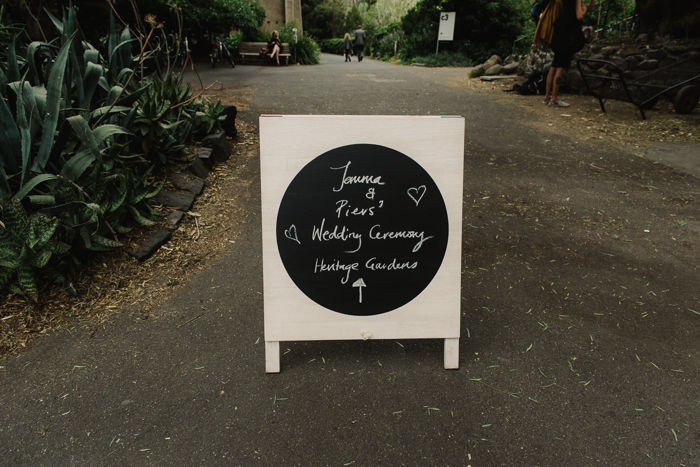 c3
Jemma
&
Piers'
Wedding Ceremony
Heritage Gardens